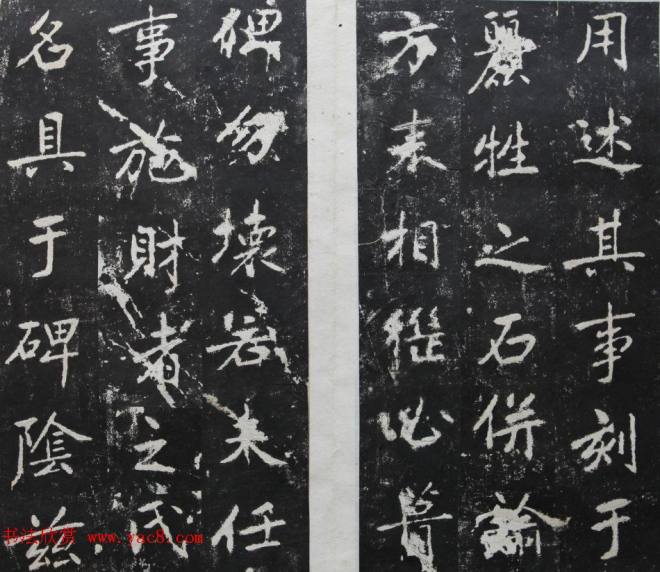 用述其事刻于
麗牲之石併諭
方来相継必葺
俾勿壞若夫任
事施財者之氏
名具于碑陰兹
书法欣赏 www.yac8.com